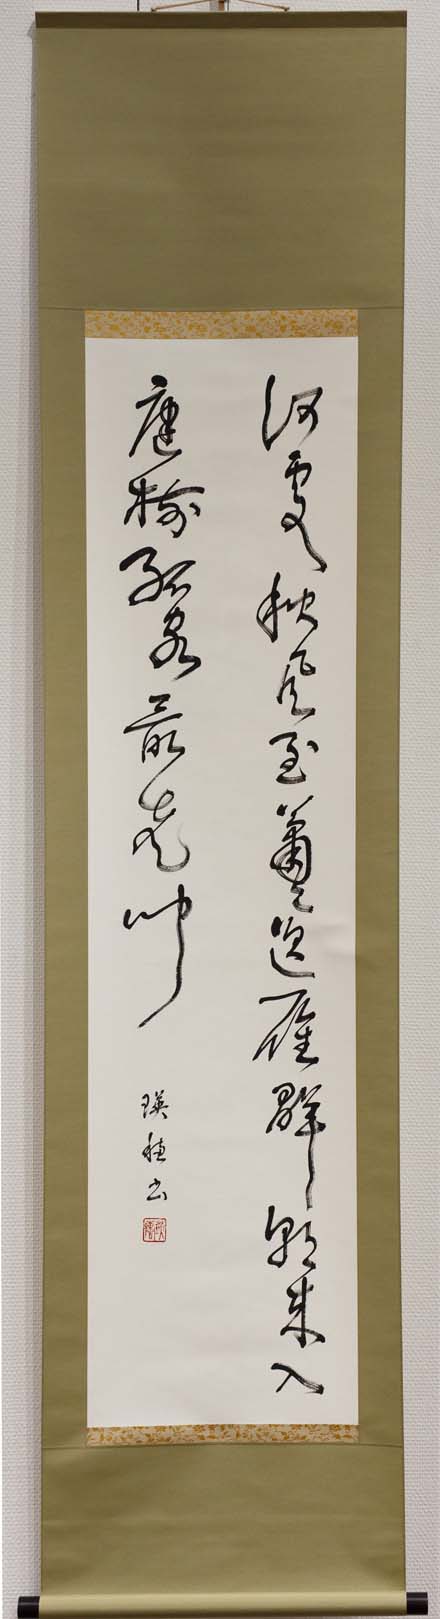 何處秋風至蕭々送雁群朝来入
庭樹孤客最先聞
瑛書